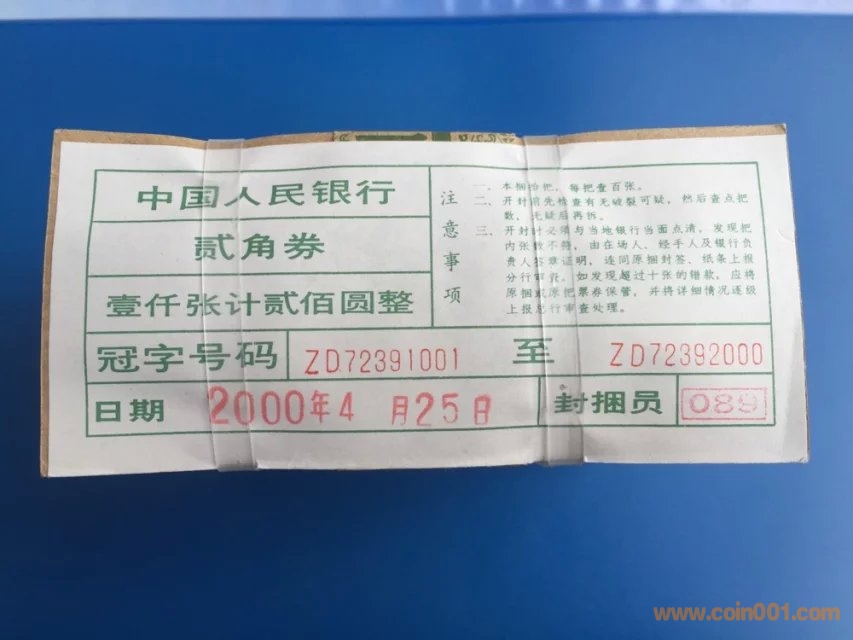 中国人民银行
贰角券
壹仟张计贰佰圆整
注意事项
一、本捆拾把，每把壹百张。
二、开封前先检查有无破裂可疑，然后查点把
数，无疑后再拆。
三、开封时必须与当地银行当面点清，发现把
内张数不符，由在场人、经手人及银行负
责人签章证明，连同原捆封签、纸条上报
分行审查。如发现超过十张的错款，应将
原捆或原把票券保管，并将详细情况逐级
上报总行审查处理。
冠字号码 ZD72391001 至 ZD72392000
日期 2000年4月25日 封捆员 089
www.coin001.com